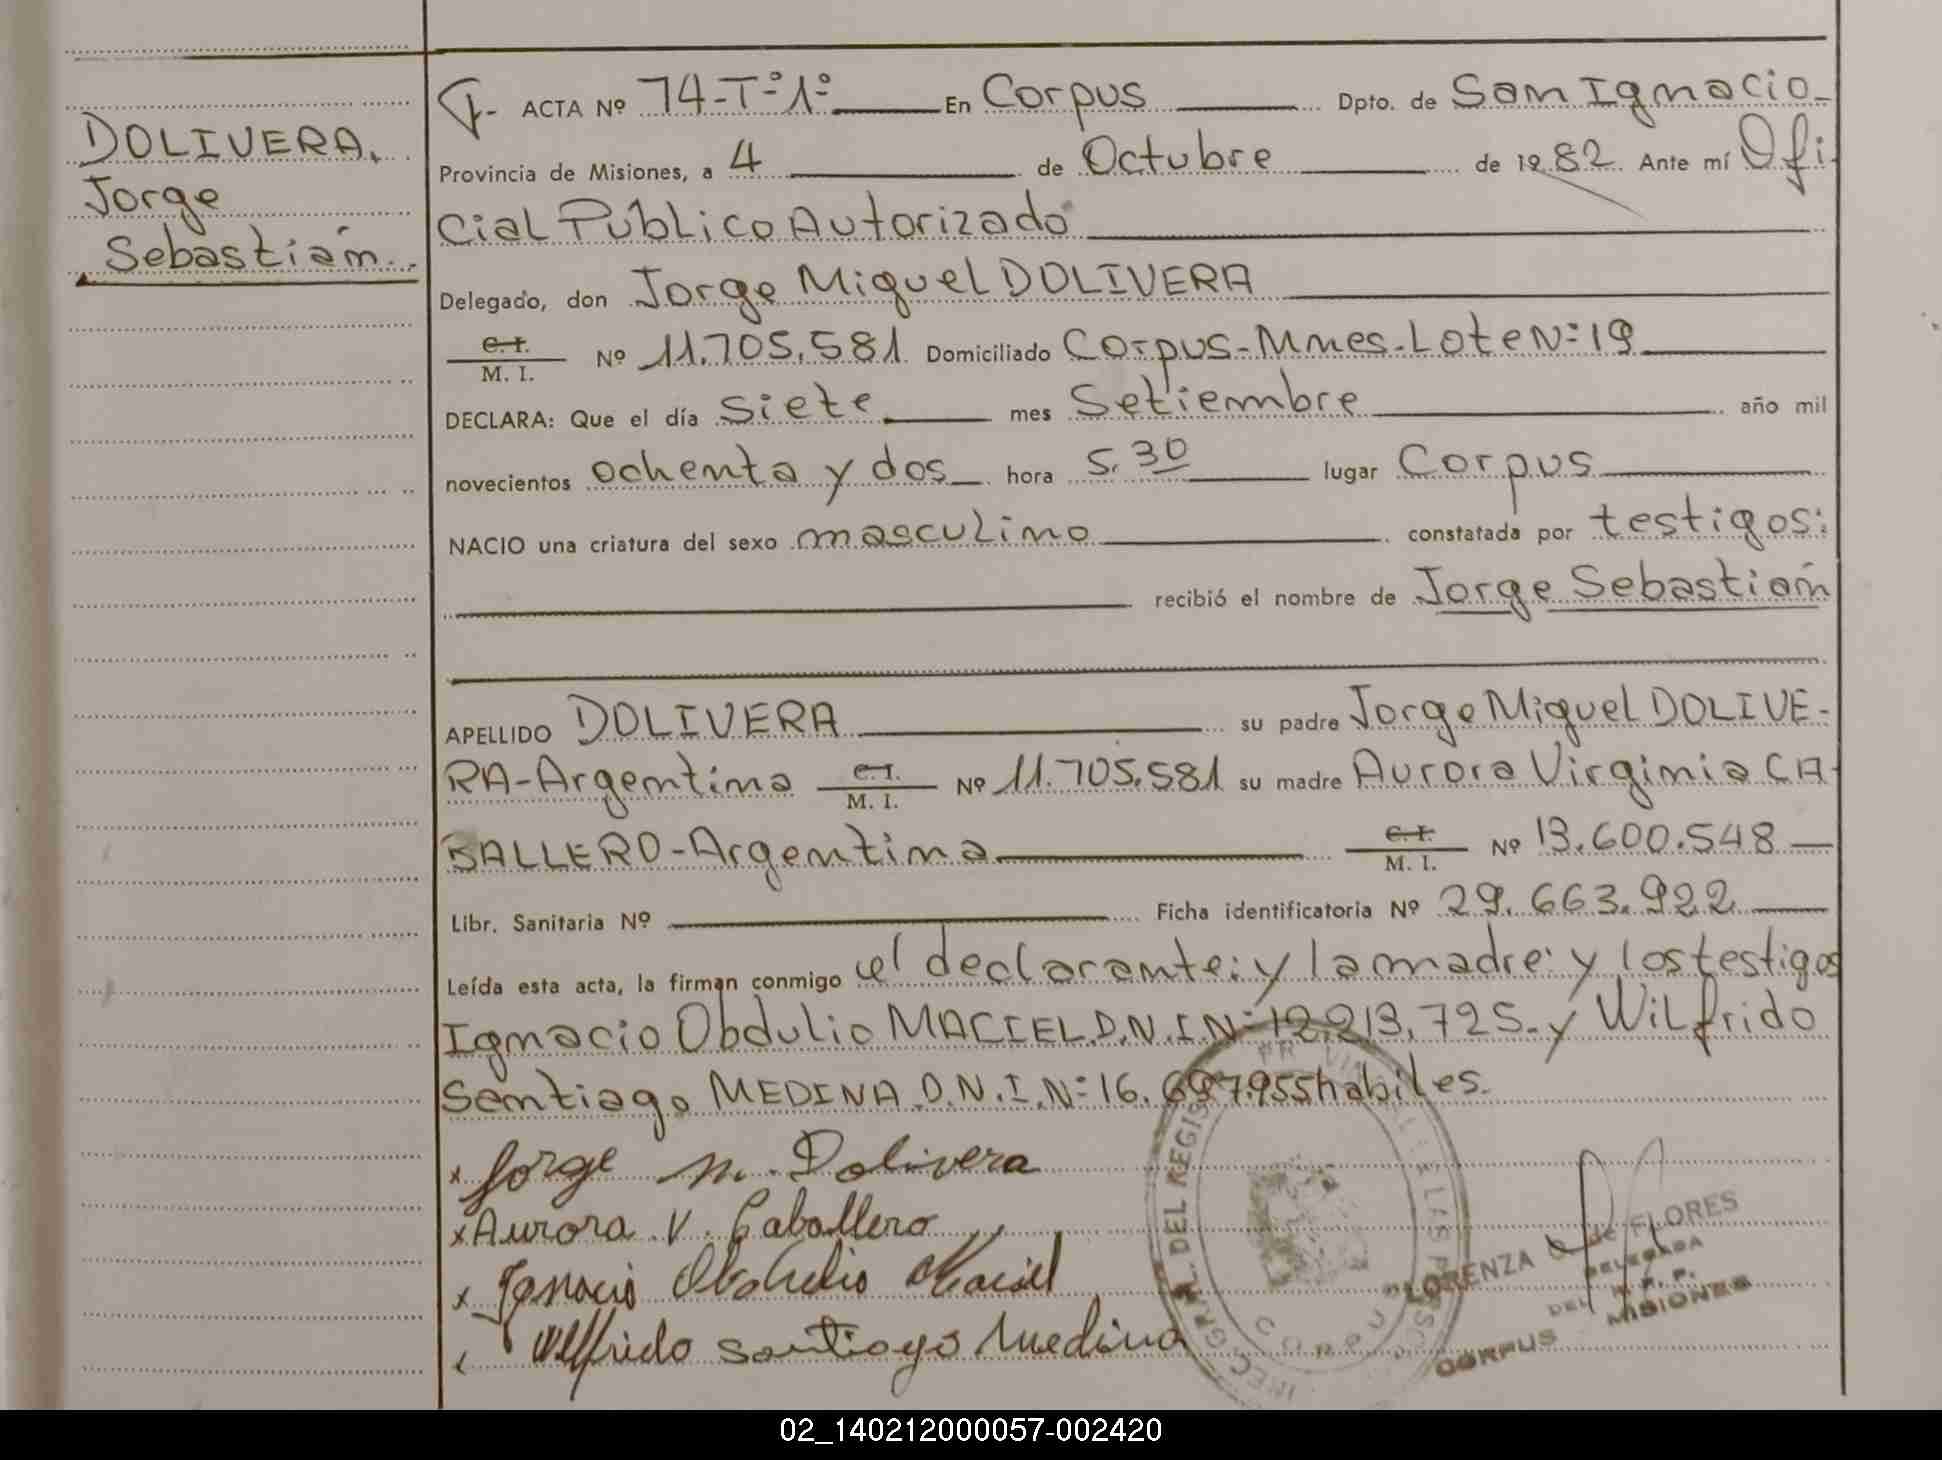 DOLIVERA,
Jorge
Sebastián.
ACTA Nº 74-Tº1º En Corpus Dpto. de San Ignacio
Provincia de Misiones, a 4 de Octubre de 1982 Ante mí Ofi-
cial Público Autorizado
Delegado, don Jorge Miguel DOLIVERA
C.I. M. I. Nº 11.705.581 Domiciliado Corpus-Mnes-Lote Nº 19
DECLARA: Que el día siete mes Setiembre año mil
novecientos ochenta y dos hora 5.30 lugar Corpus
NACIO una criatura del sexo masculino constatada por testigos:
recibió el nombre de Jorge Sebastián
APELLIDO DOLIVERA su padre Jorge Miguel DOLIVE-
RA-Argentina C.I. M. I. Nº 11.705.581 su madre Aurora Virginia CA-
BALLERO-Argentina C.I. M. I. Nº 13.600.548
Libr. Sanitaria Nº Ficha identificatoria Nº 29.663.922
Leída esta acta, la firman conmigo el declarante: y la madre: y los testigos
Ignacio Obdulio MACIEL.D.N.I.Nº 12.213.725.y Wilfrido
Santiago MEDINA.D.N.I.Nº 16.697.955 habiles.
x Jorge M. Dolivera
x Aurora V. Caballero
x Ignacio Obdulio Maciel
Wilfrido Santiago Medina
LORENZA de FLORES
DELEGADA
DEL R. P.
CORPUS MISIONES
DEL REGIS
CORPUS
02_140212000057-002420